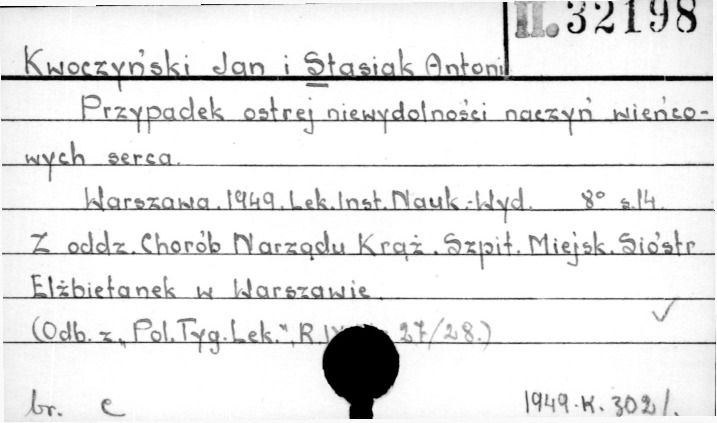 II. 32198
Kwoczyński Jan i Stasiak Antoni
Przypadek ostrej niewydolności naczyń wieńco-
wych serca.
Warszawa. 1949. Lek. Inst. Nauk.-Wyd. 8° s.14.
Z oddz. Chorób Narządu Krąż. Szpit. Miejsk. Sióstr
Elżbietanek w Warszawie.
(Odb. z „Pol. Tyg. Lek.", R. 27/28.)
br. c 1949.K.302/.